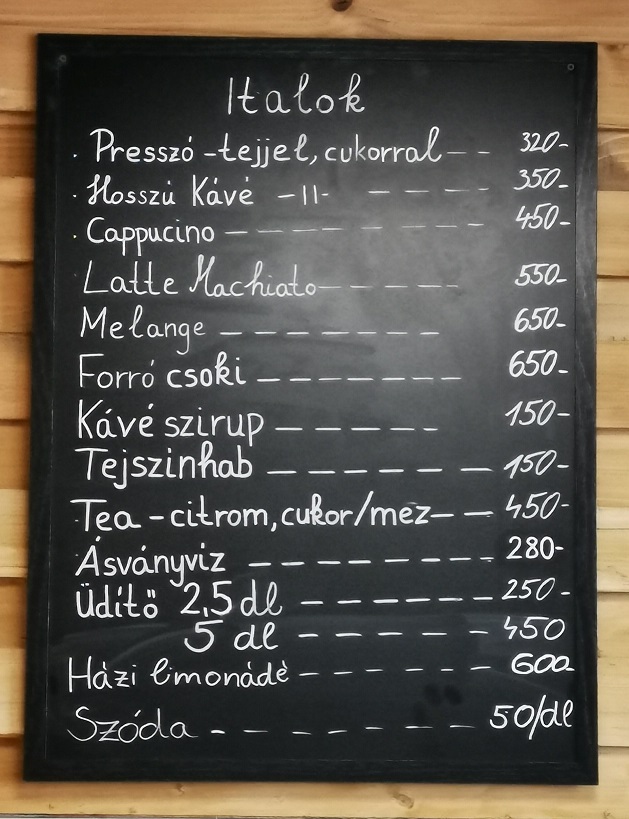 Italok
· Presszó -tejjel, cukorral -- 320-
· Hosszú Kávé -11- --- 350-
· Cappucino ------ 450-
Latte Machiato ---- 550-
Melange ----- 650-
Forró csoki ----- 650-
Kávé szirup ---- 150-
Tejszinhab ------ 150-
Tea - citrom, cukor/méz -- 450-
Ásványvíz ------ 280-
Üdítő 2,5 dl ----- 250-
5 dl ----- 450
Házi limonádé ------ 600-
Szóda ------- 50/dl